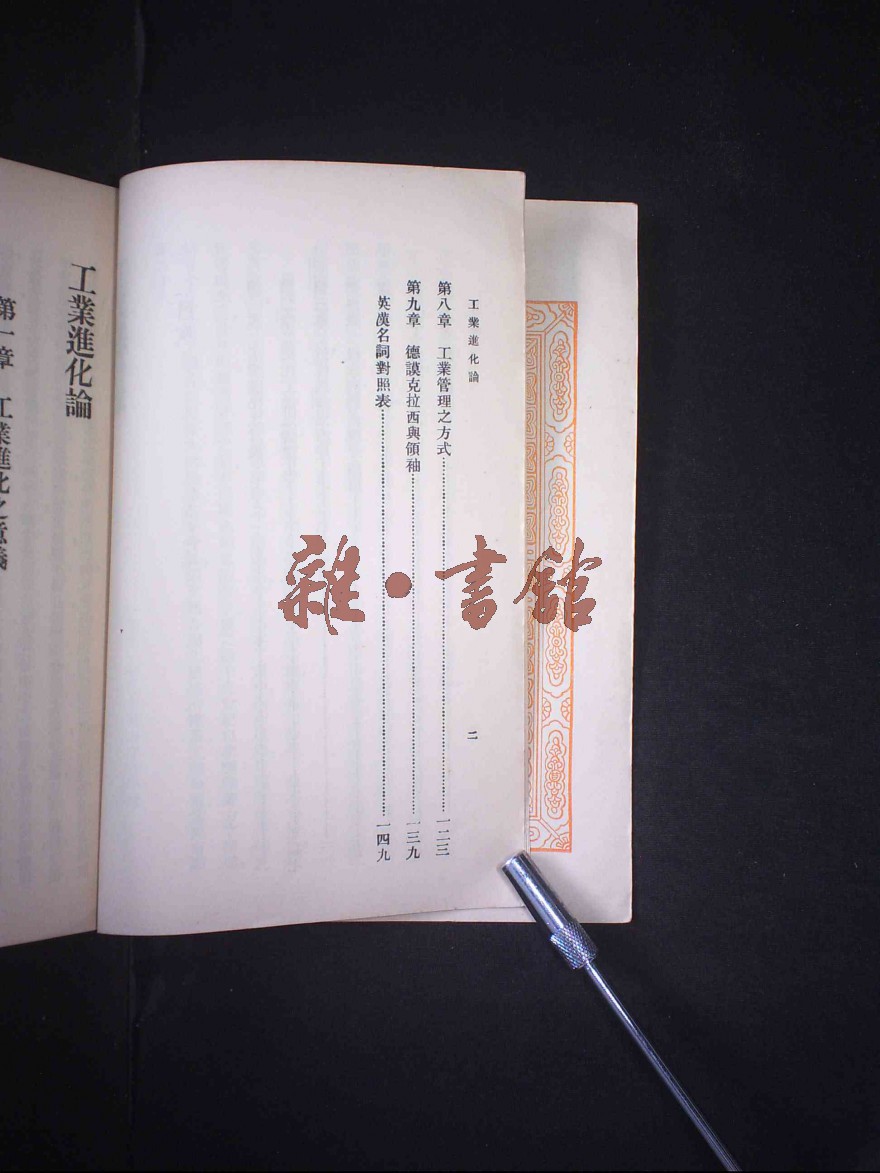 工業進化論
二
第八章　工業管理之方式……一二三
第九章　德謨克拉西與領袖……一三九
英漢名詞對照表……一四九
工業進化論
第一章　工業進化之意義
雜・書館